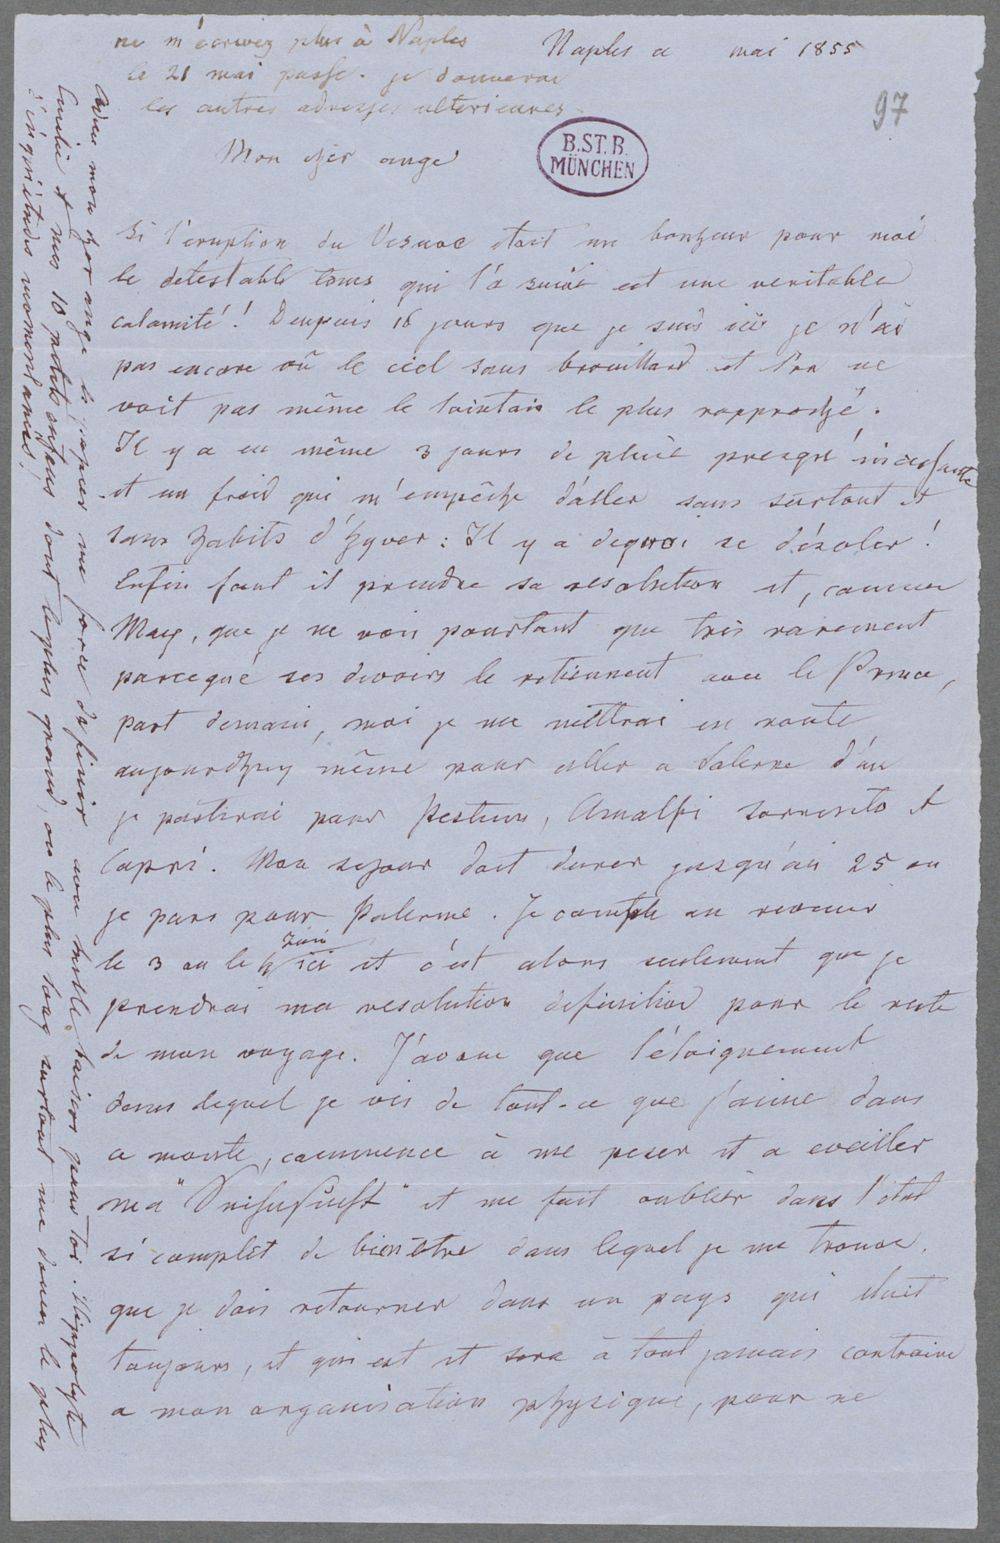 ne m'ecrivez plus à Naples
le 21 mai passé. je donnerai
les autres adresses ulterieures.
Naples a mai 1855
97
B.ST.B.
MÜNCHEN
Mon cher ange
Si l'eruption du Vesuve etait un bonheur pour moi
le detestable tems qui l'a suivie est une veritable
calamité! Deupuis 16 jours que je suis ici je n'ai
pas encore vû le ciel sans brouillard et l'on ne
voit pas même le lointain le plus rapproché.
Il y a eu même 3 jours de pluie presqu' incessante
et un froid qui m'empêche d'aller sans surtout et
sans habits d'hyver: Il y a dequoi se désoler!
Enfin faut il prendre sa resolution et, comme
Max, que je ne vois pourtant que très rarement
parceque ses devoirs le retiennent avec le Prince,
part demain, moi je me mettrai en route
aujourdhuy même pour aller a Salerne d'où
je partirai pour Pestum, Amalfi Sorrento et
Capri. Mon sejour doit durer jusqu'au 25 ou
je pars pour Palerme. Je compte en revenir
le 3 ou le 4 Juni ici et c'est alors seulement que je
prendrai ma resolution definitive pour le reste
de mon voyage. J'avoue que l'éloignement
dans lequel je vis de tout-ce que j'aime dans
ce monde, commence à me peser et a eveiller
ma "Sehnsucht" et me fait oublier dans l'etat
si complet de bien être dans lequel je me trouve,
que je dois retourner dans un pays qui etait
toujours, et qui est et sera à tout jamais contraire
a mon organisation physique, pour ne
Adieu mon cher ange le papier me force de finir mille baisers pour toi. Hippolyte
Emilie & nos 10 petits enfans dont le plus grand, ou le plus long surtout me donne le plus
d'inquiétudes momentanées!